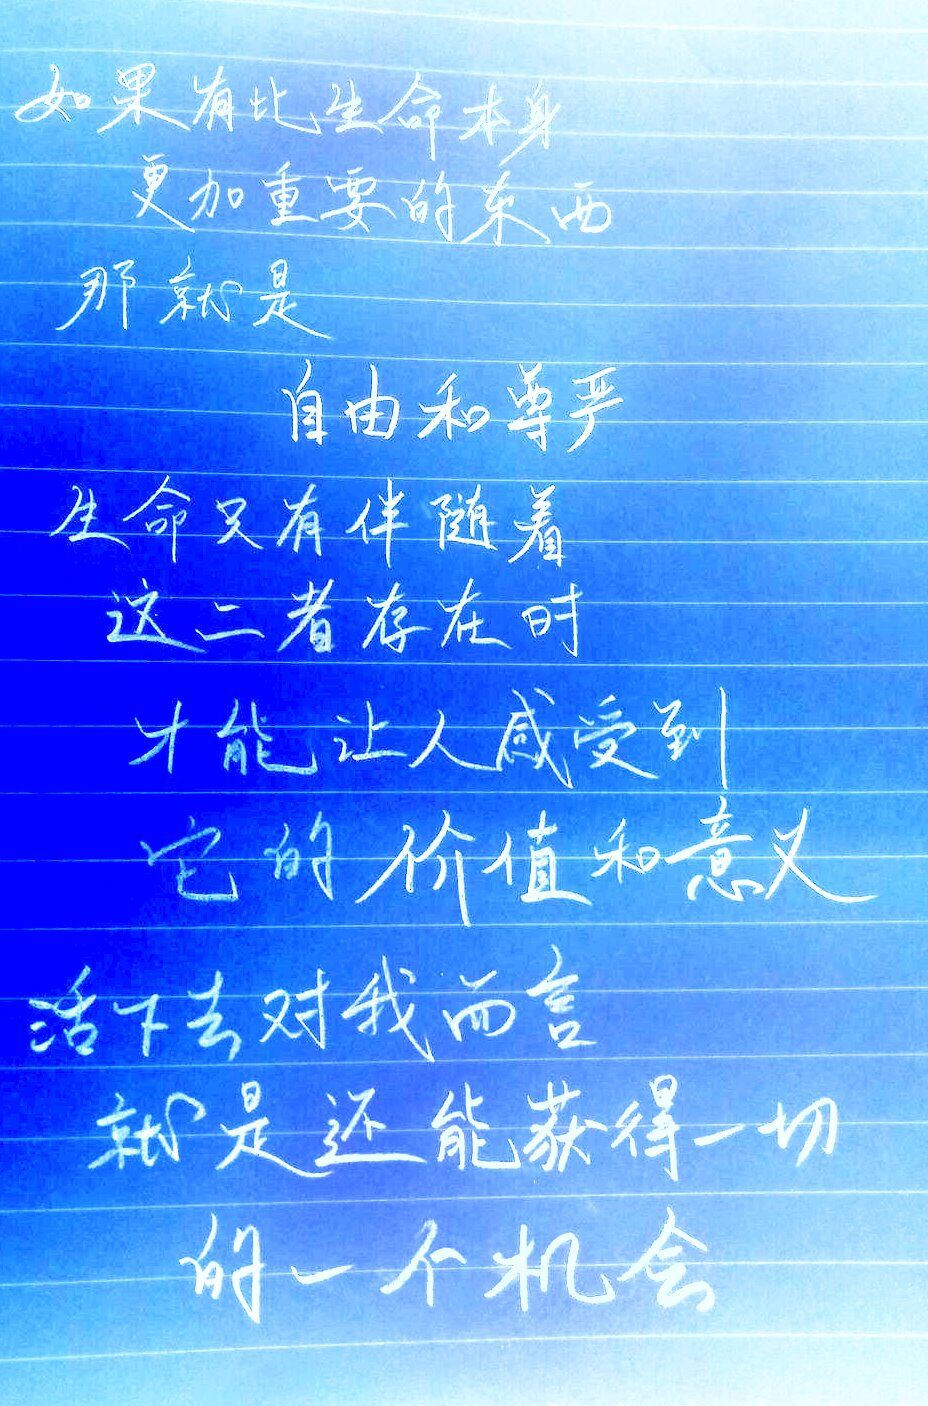 如果有比生命本身
更加重要的东西
那就是
自由和尊严
生命只有伴随着
这二者存在时
才能让人感受到
它的价值和意义
活下去对我而言
就是还能获得一切
的一个机会